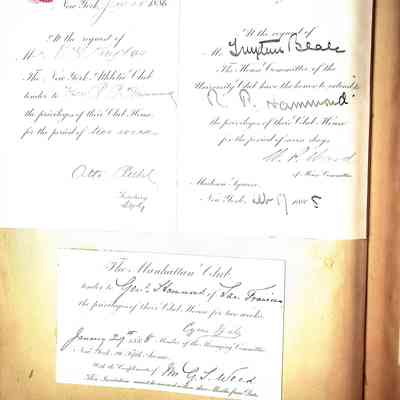 New York, 1886
At the request of
Mr.
The New York Athletic Club
tender to Gen. R. P. Hammond
the privileges of their Club House
for the period of two weeks
Otto Ruhl
Secretary
At the request of
Mr. Truxtun Beale
The House Committee of the
University Club have the honor to extend to
R. P. Hammond
the privileges of their Club House
for the period of days
W. P. Wood
of House Committee
Madison Square,
New York, 188
The Manhattan Club
tender to Gen. Hammond of San Francisco
the privileges of their Club House for two weeks
January 29th 188 Member of the Managing Committee
New York, Fifth Avenue,
With the Compliments of Mr G. S. Wood
This Invitation must be used within three Months from Date